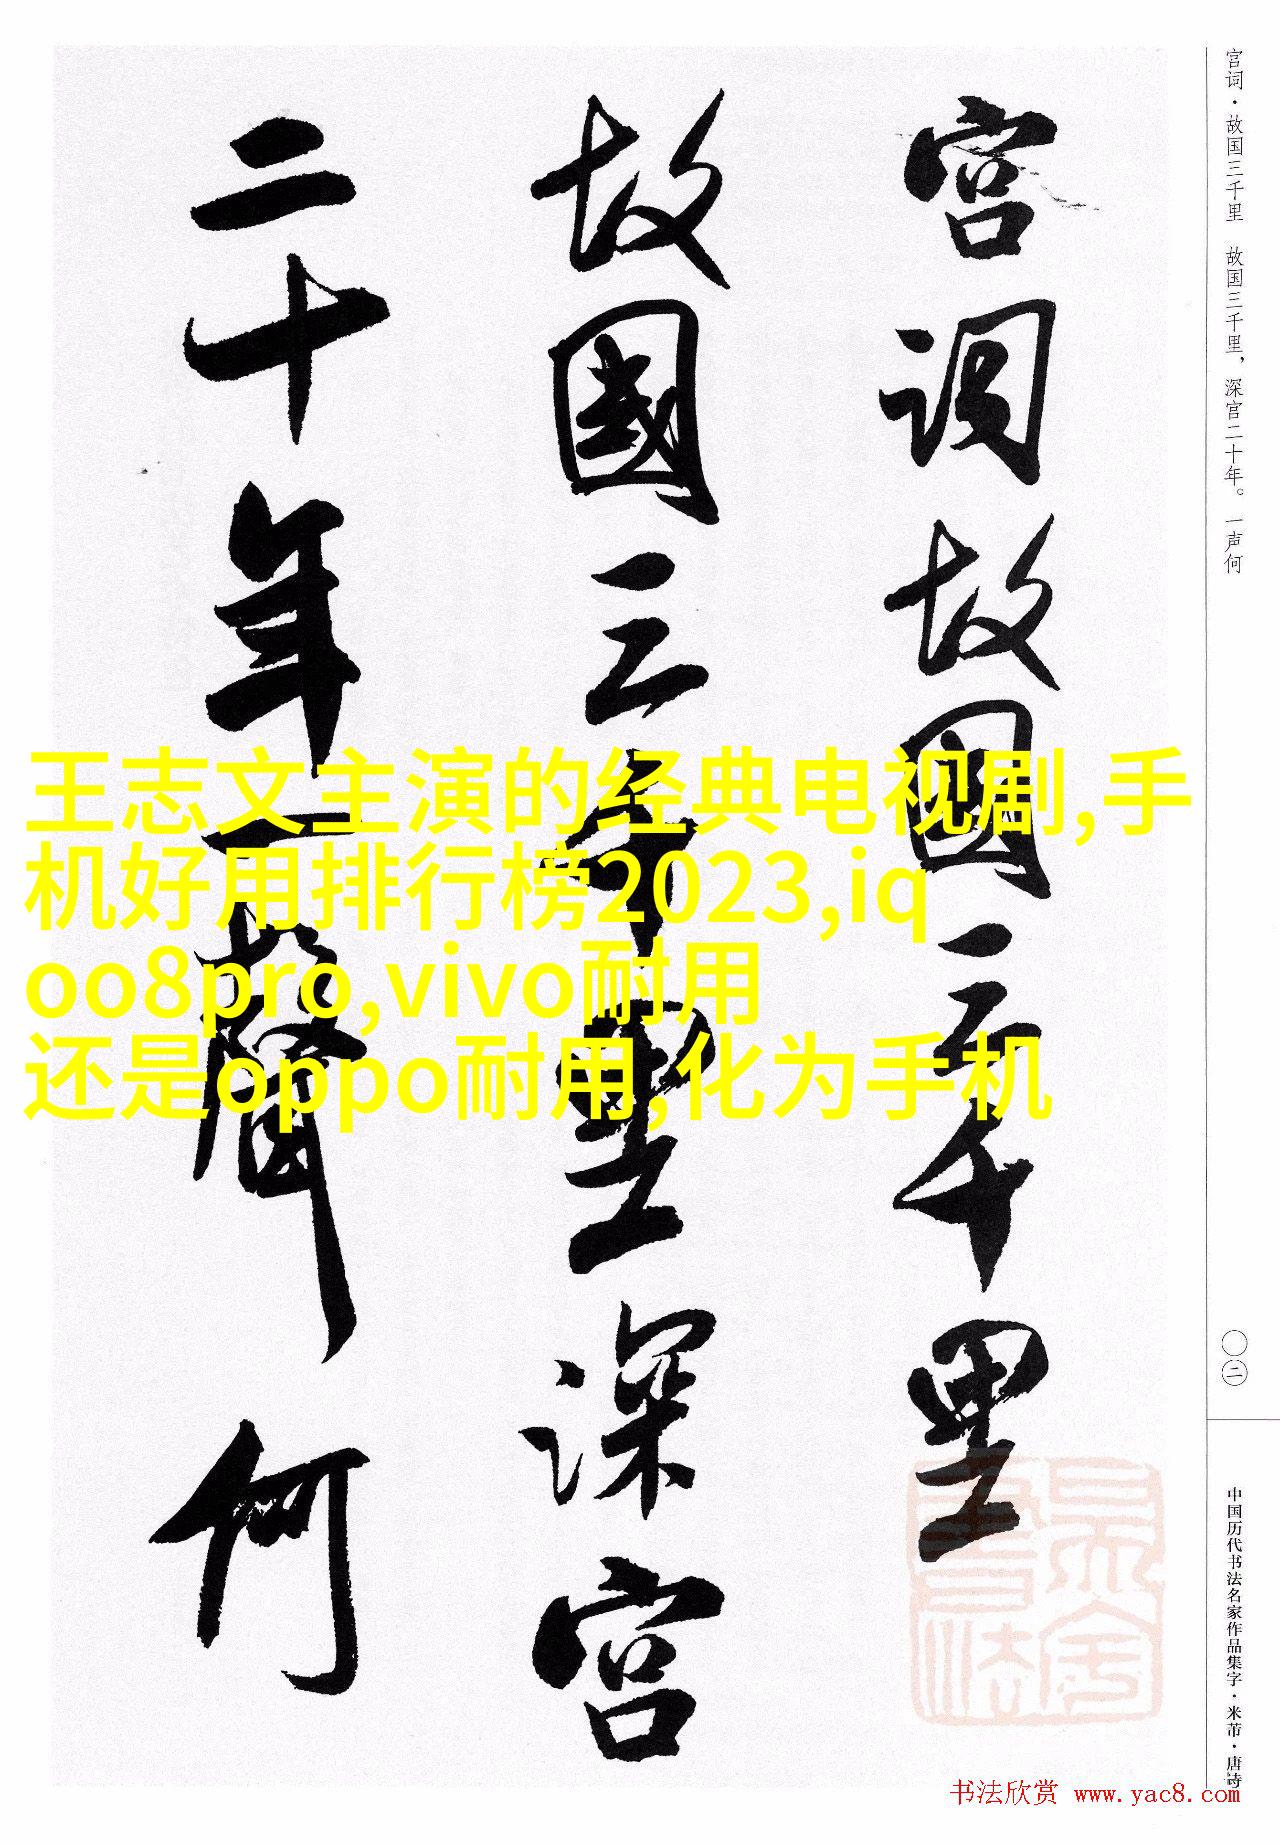 宫词故國三千里
故國三千里深宫
二十年一聲何
宫词·故国三千里 故国三千里，深宫二十年。一声何
〇二
中国历代书法名家作品集字·米芾·唐诗
王志文主演的经典电视剧,手
机好用排行榜2023,iq
oo8pro,vivo耐用
还是oppo耐用,化为手机
书法欣赏 www.yac8.com